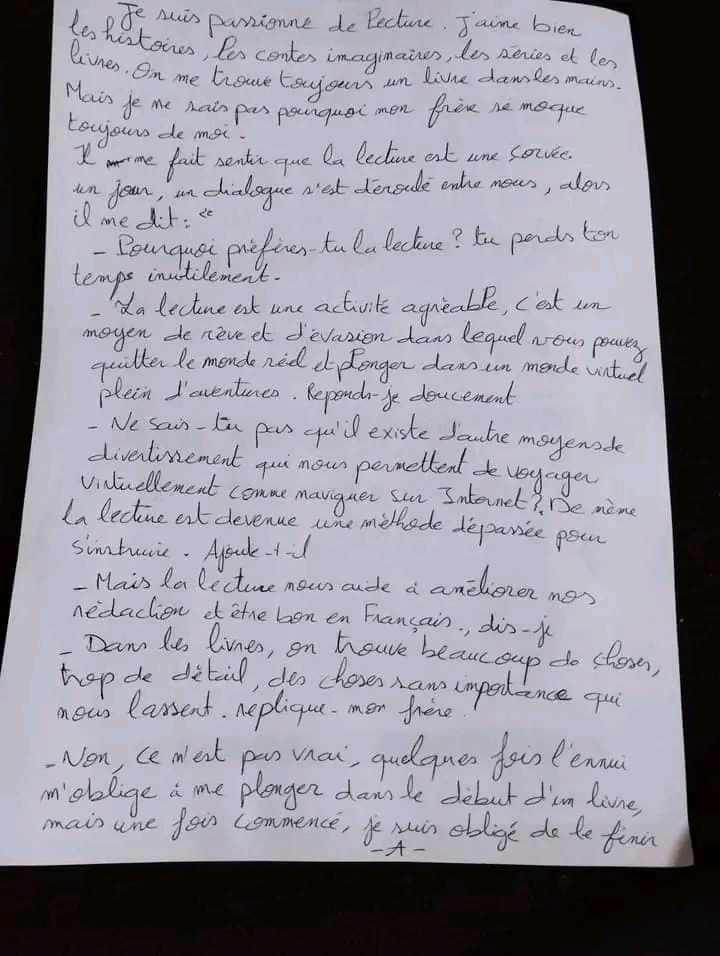 Je suis passionné de lecture. J'aime bien
les histoires, les contes imaginaires, les séries et les
livres. On me trouve toujours un livre dans les mains.
Mais je ne sais pas pourquoi mon frère se moque
toujours de moi.
Il me fait sentir que la lecture est une corvée.
un jour, un dialogue s'est déroulé entre nous, alors
il me dit : "
- Pourquoi préfères-tu la lecture ? tu perds ton
temps inutilement.
- La lecture est une activité agrèable, c'est un
moyen de rêve et d'évasion dans lequel vous pouvez
quitter le monde réel et plonger dans un monde virtuel
plein d'aventures. Reponds-je doucement
- Ne sais-tu pas qu'il existe d'autre moyens de
divertissement qui nous permettent de voyager
virtuellement comme naviguer sur Internet ? De même
la lecture est devenue une méthode dépassée pour
s'instruire. Ajoute-t-il
- Mais la lecture nous aide à améliorer nos
rédaction et être bon en Français., dis-je
- Dans les livres, on trouve beaucoup de choses,
trop de détail, des choses sans importance qui
nous lassent. replique-mon frère.
- Non, ce n'est pas vrai, quelques fois l'ennui
m'oblige à me plonger dans le début d'un livre,
mais une fois commencé, je suis obligé de le finir
-A-